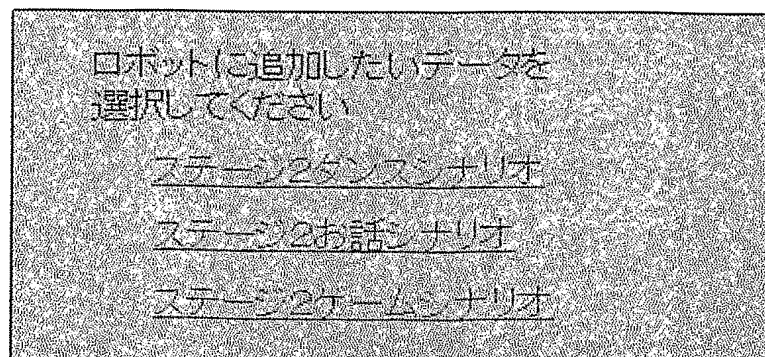 ロボットに追加したいデータを
選択してください
ステージ2ダンスシナリオ
ステージ2お話シナリオ
ステージ2ゲームシナリオ